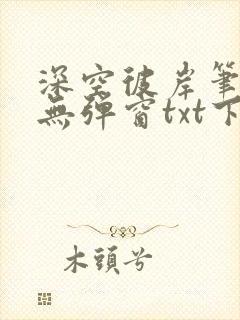 深空彼岸筆
無彈窗txt下
木頭兮